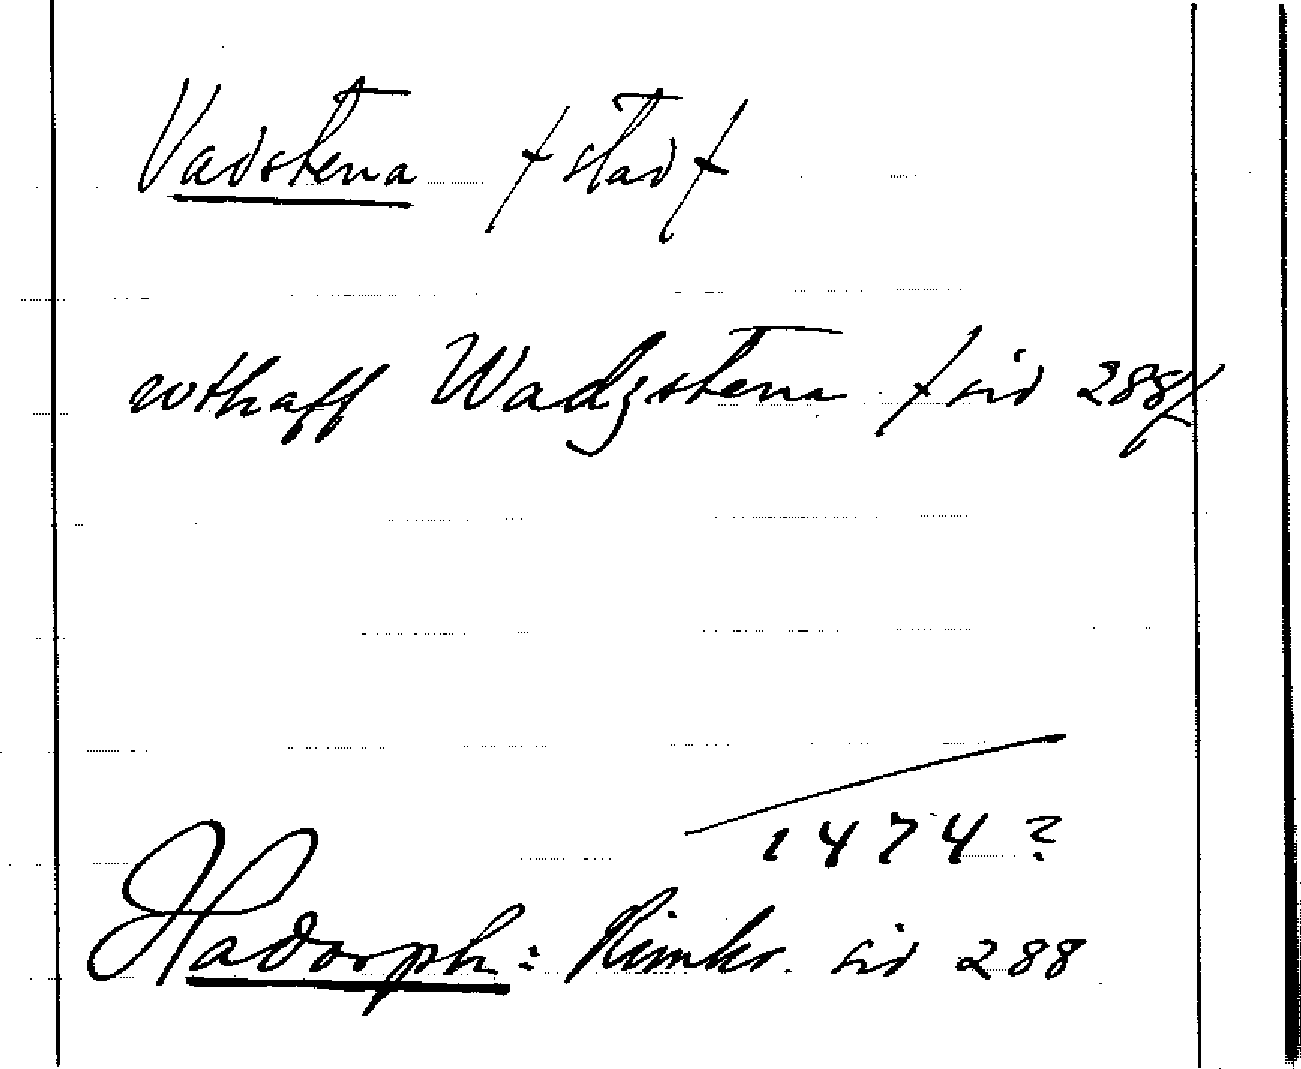 Vadstena /stad/
wthaff Wadzstena /sid 288/
1474?
Hadorph: Rimkr. sid 288